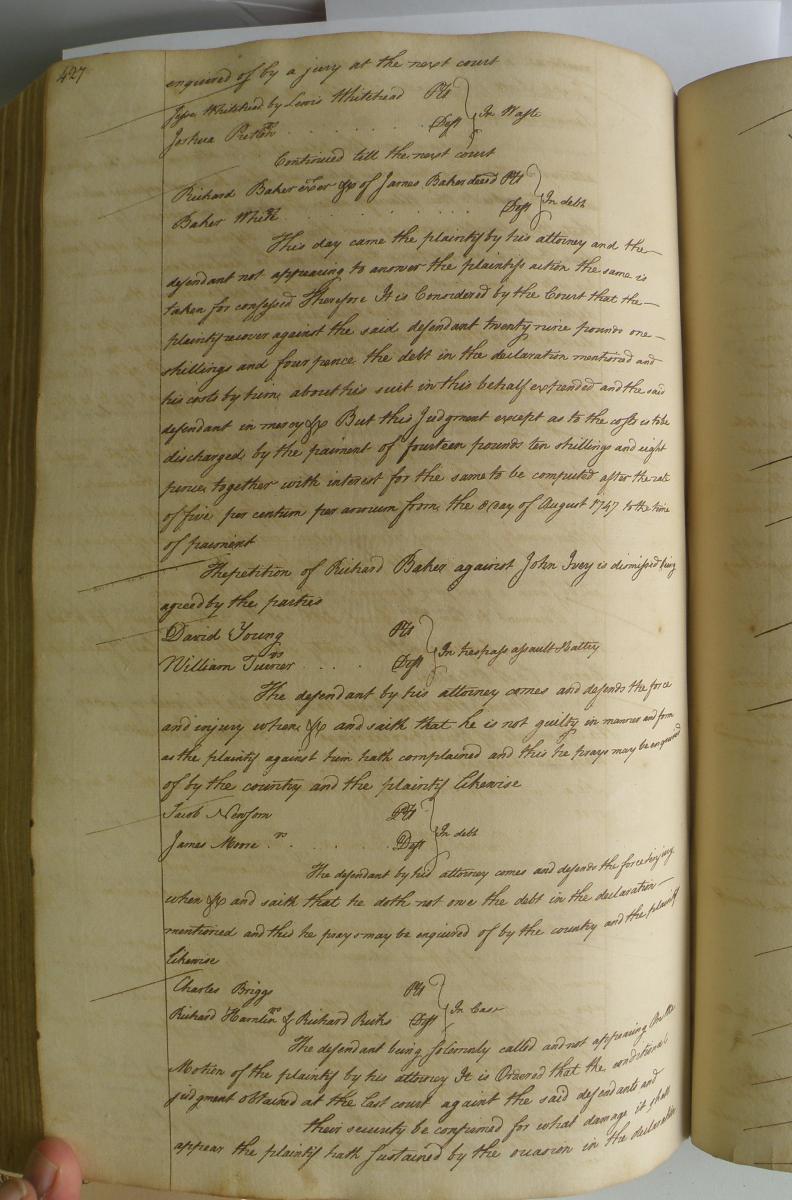 427
enquired of by a jury at the next court
Whitehead by Lewis Whitehead Plt
vs } In Waste
Joshua Deft
Continued till the next court
Richard Baker exer &c of James Baker deced Plt
vs } In debt
Baker White Deft
This day came the plaintif by his attorney and the
defendant not appearing to answer the plaintifs action the same is
taken for confessed Therefore It is Considered by the Court that the
plaintif recover against the said defendant twenty nine pounds one
shillings and four pence the debt in the declaration mentioned and
his costs by him about his suit in this behalf expended and the said
defendant in mercy &c But this Judgment except as to the costs is to be
discharged by the paiment of fourteen pounds ten shillings and eight
pence together with interest for the same to be computed after the rate
of five per centum per annum from the 8 day of August 1747 to the time
of paiment
The petition of Richard Baker against John Ivey is dismissed being
agreed by the parties
David Young Plt
vs } In trespass assault & battry
William Turner Deft
The defendant by his attorney comes and defends the force
and injury when &c and saith that he is not guilty in manner and form
as the plaintif against him hath complained and this he prays may be enquired
of by the country and the plaintif likewise
Jacob Newsom Plt
vs } In debt
James Moore Deft
The defendant by his attorney comes and defends the force & injury
when &c and saith that he doth not owe the debt in the declaration
mentioned and this he prays may be enquired of by the country and the plaintif
likewise
Charles Briggs Plt
vs } In Case
Richard Hamlin & Richard Ricks Deft
The defendant being solemnly called and not appearing On the
Motion of the plaintif by his attorney It is Ordered that the conditional
judgment obtained at the last court against the said defendants and
their security be confirmed for what damage it shall
appear the plaintif hath sustained by the occasion in the declaration